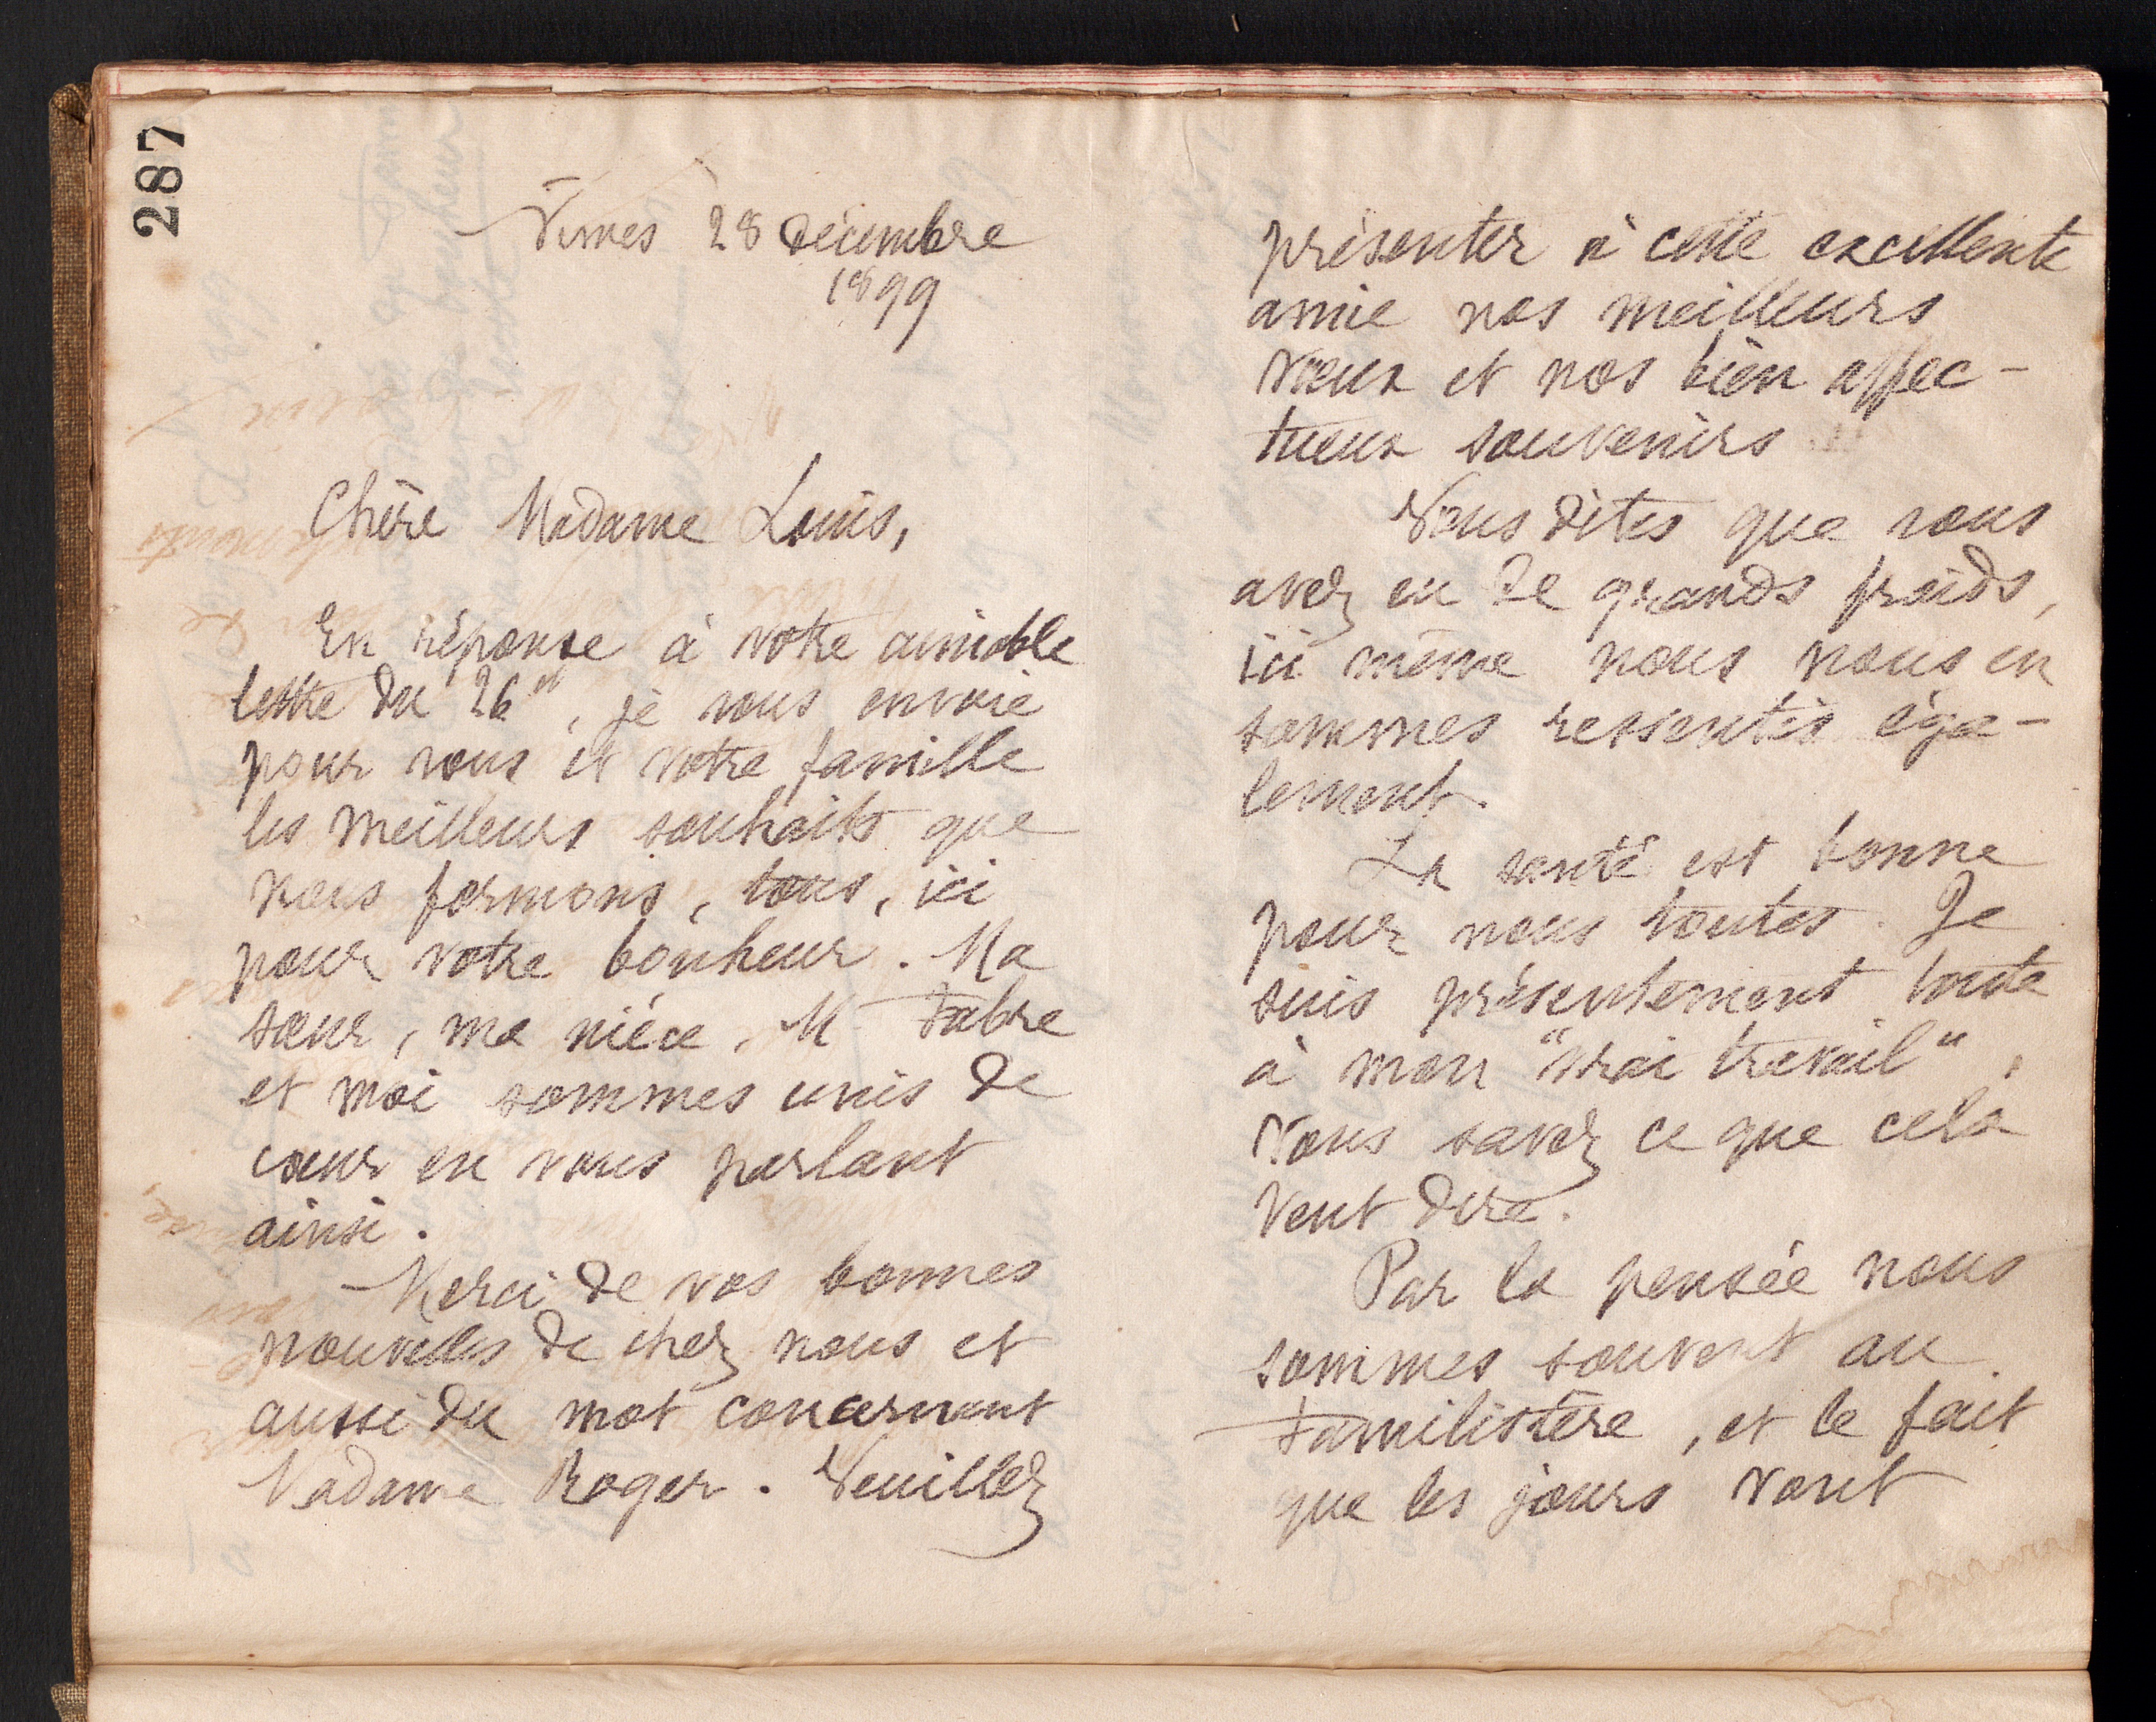 287
Nimes 28 décembre
1899
Chère Madame Louis,
En réponse à votre aimable
lettre du 26 ct, je vous envoie
pour vous et votre famille
les meilleurs souhaits que
nous formons, tous, ici
pour votre bonheur. Ma
sœur, ma nièce, M Fabre
et moi sommes unis de
cœur en vous parlant
ainsi.
Merci de vos bonnes
nouvelles de chez nous et
aussi du mot concernant
Madame Roger. Veuillez
présenter à cette excellente
amie nos meilleurs
vœux et nos bien affec-
tueux souvenirs
Vous dites que vous
avez eu de grands froids,
ici même nous nous en
sommes ressentis éga-
lement.
La santé est bonne
pour nous toutes. Je
suis présentement toute
à mon "vrai travail",
Vous savez ce que cela
veut dire.
Par la pensée nous
sommes souvent au
Familistère, et le fait
que les jours vont